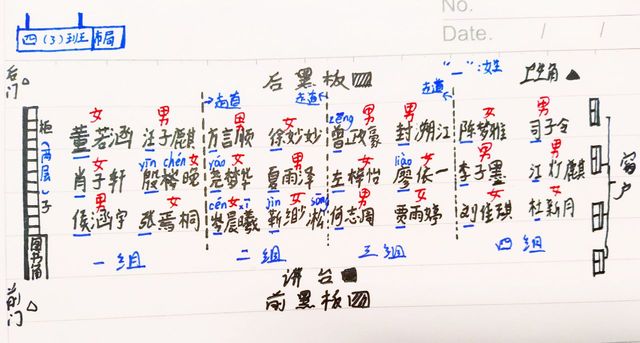 No.
Date.
四(3)班 布局
"_":姓
后门 后黑板 卫生角
走道 走道
女 男 女 女 zēng 男 男 女 男
董若涵 汪子麒 方言顺 徐妙妙 曾政豪 封溯江 陈梦雅 司子令
男 yīn chén 女 yáo 女 男 女 liào 女 男 男
肖子轩 殷梣晚 尧梦华 夏雨泽 左梣怡 廖依一 李子墨 江灯麒
男 女 cén 女 xī jìn sōng 男 女 女 女
侯涵宇 张焉桐 岑晨曦 靳缈凇 何志周 贾雨婷 刘佳琪 杜新月
柜(两层)子
图书角
窗户
一组 二组 三组 四组
讲台
前门 前黑板